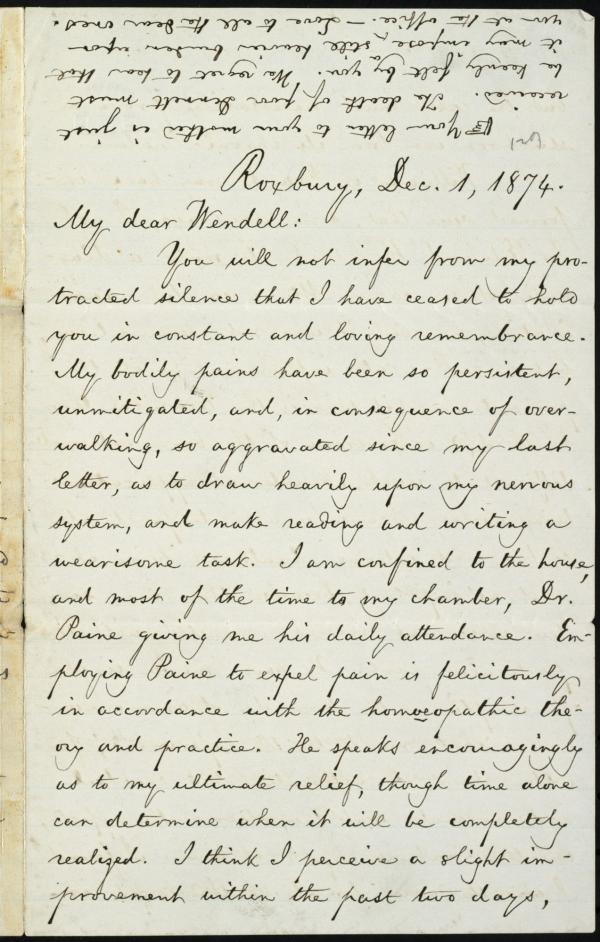 Roxbury, Dec. 1, 1874.
My dear Wendell:
You will not infer from my pro-
tracted silence that I have ceased to hold
you in constant and loving remembrance.
My bodily pains have been so persistent,
unmitigated, and, in consequence of over-
walking, so aggravated since my last
letter, as to draw heavily upon my nervous
system, and make reading and writing a
wearisome task. I am confined to the house,
and most of the time to my chamber, Dr.
Paine giving me his daily attendance. Em-
ploying Paine to expel pain is felicitously
in accordance with the homœopathic the-
ory and practice. He speaks encouragingly
as to my ultimate relief, though time alone
can determine when it will be completely
realized. I think I perceive a slight im-
provement within the past two days,
Your letter to your mother is just
received. The death of poor Dennett must
be keenly felt by you. We regret to hear that
it may impose still heavier burden upon
you at the office. — Love to all the dear ones.